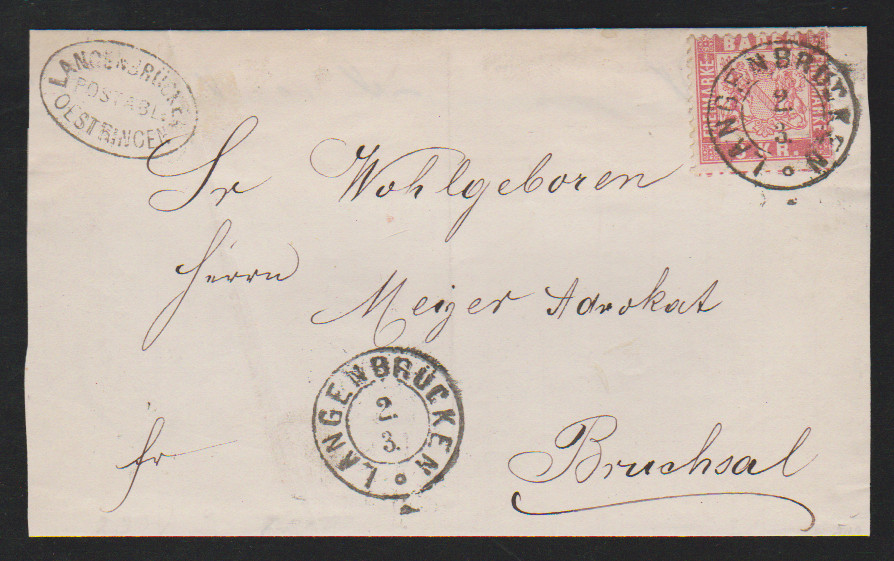 LANGENBRÜCKEN
POSTABL.
OESTRINGEN
BADEN
FREIMARKE
KR.
LANGENBRÜCKEN
2/
3.
Sr Wohlgeboren
Herrn
Meyer Advokat
LANGENBRÜCKEN
2/
3.
fr
Bruchsal